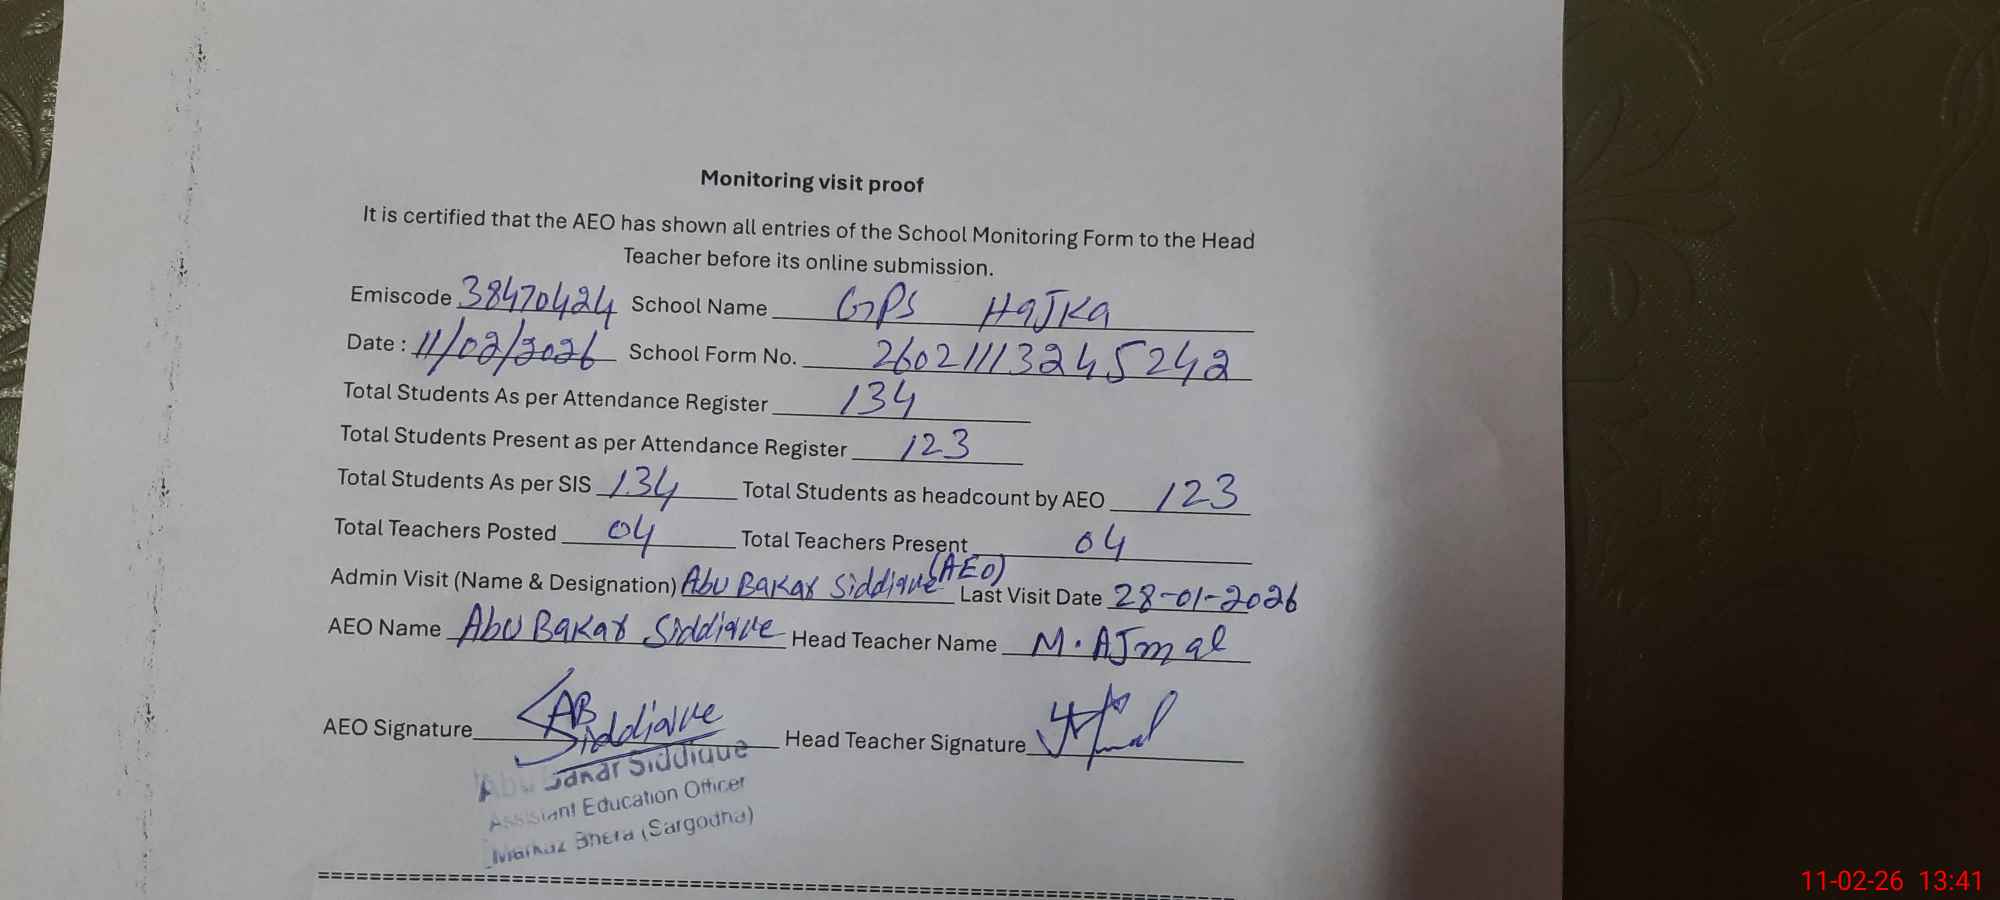 Monitoring visit proof
It is certified that the AEO has shown all entries of the School Monitoring Form to the Head
Teacher before its online submission.
Emiscode 38470424 School Name GPS HaJKa
Date : 11/02/2026 School Form No. 26021113245242
Total Students As per Attendance Register 134
Total Students Present as per Attendance Register 123
Total Students As per SIS 134 Total Students as headcount by AEO 123
Total Teachers Posted 04 Total Teachers Present 04
Admin Visit (Name & Designation) Abu Bakar Siddique (AEO) Last Visit Date 28-01-2026
AEO Name Abu Bakar Siddique Head Teacher Name M. AJmal
AEO Signature AB Siddique Head Teacher Signature
Abu Bakar Siddique
Assistant Education Officer
Markaz Bhera (Sargodha)
11-02-26 13:41